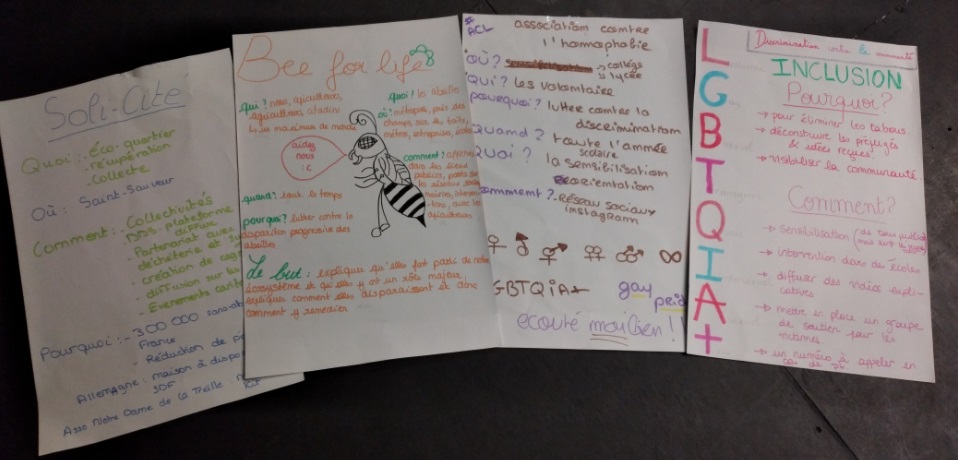 Soli-Cité
Quoi : . éco-quartier
. récupération
. collecte
Où : Saint-Sauveur
Comment : . Collectivités
. plateforme
diffuse
. Partenariat avec
déchèterie et
. création de
. diffusion sur les
. Evenements
Pourquoi : - 300 000 sans-
France
- Réduction de
Allemagne : maison à dispo
SDF
Asso Notre Dame de la Treille :
Bee for life
qui ? nous, apiculteurs,
agriculteurs, citadins
le maximum de monde
quoi ? les abeilles
où : métropole, puis des
champs, sur les toits,
métros, entreprises, écoles
aidez
nous
:c
comment ? affiches
dans les lieux
publics, posts sur
les réseaux sociaux
avec les
apiculteurs
quand ? tout le temps
pourquoi ? lutter contre la
disparition progressive des
abeilles
Le but : expliquer qu'elles font partie de notre
écosystème et qu'elles y ont un rôle majeur,
expliquer comment elles disparaissent et donc
comment y remédier
# ACL
association contre
l'homophobie
où ? → collège
↳ lycée
Qui ? les volontaire
pourquoi ? lutter contre la
discrimination
Quand ? toute l'année
scolaire
Quoi ? la sensibilisation
orientation
comment ? . Réseau sociaux
instagram
♀ ♂ ⚥ ⚢ ⚣ ∞
GBTQiA+
gay
écouté moi bien !
LGBTQIA+
Discrimination contre la communauté
INCLUSION
Pourquoi ?
→ pour éliminer les tabous
→ déconstruire les préjugés
& idées reçues
→ visibiliser la communauté
Comment ?
→ sensibilisation
→ intervention dans des écoles
→ diffuser des vidéos expli-
catives
→ mettre en place un groupe
de soutien pour les
victimes
→ un numéro à appeler en
cas de